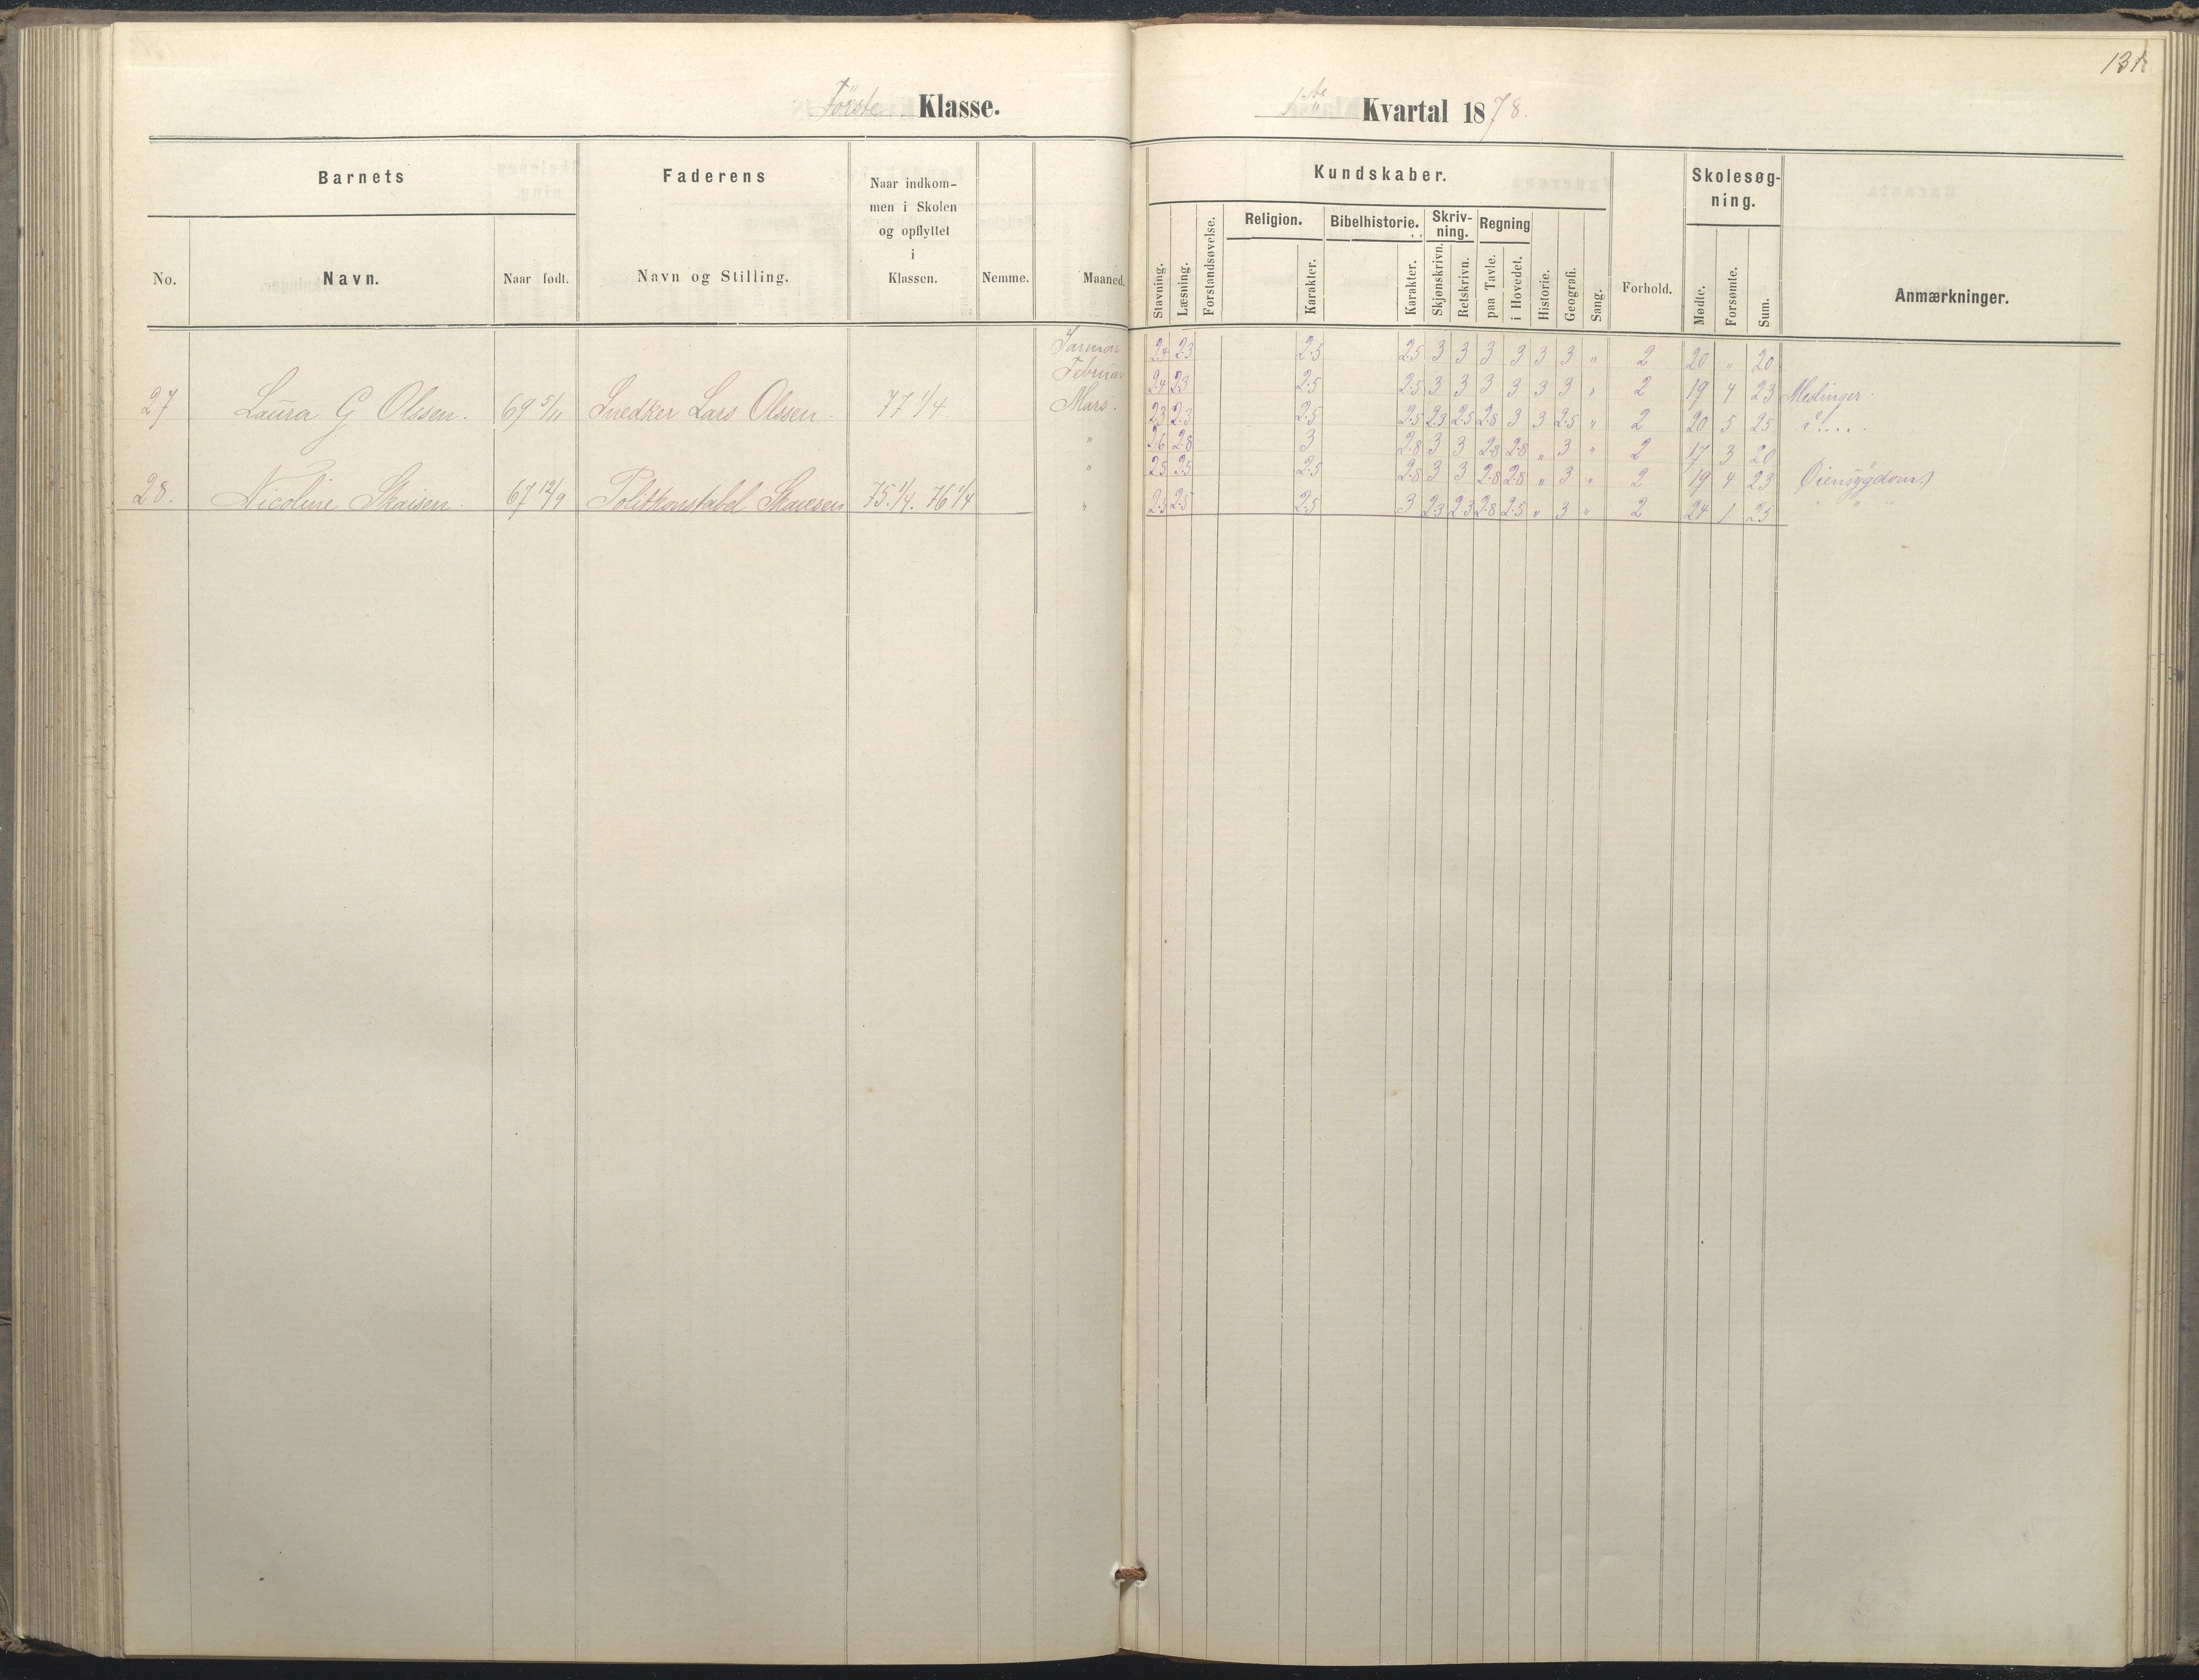 Förste Klasse.
1ste Kvartal 1878.
Barnets
Faderens
Naar indkom-
men i Skolen
og opflyttet
i
Klassen.
No.
Navn.
Naar født.
Navn og Stilling.
Nemme.
Maaned.
Kundskaber.
Skolesøg-
ning.
Stavning.
Læsning.
Forstandsøvelse.
Religion.
Karakter.
Bibelhistorie.
Karakter.
Skriv-
ning.
Skjønskrivn.
Retskrivn.
Regning
paa Tavle.
i Hovedet.
Historie.
Geografi.
Sang.
Forhold.
Mødte.
Forsømte.
Sum.
Anmærkninger.
Januar 2.4 2.3 2.5 2.5 3 3 3 3 3 3 " 2 20 " 20
Februar 2.4 2.3 2.5 2.5 3 3 3 3 3 3 " 2 19 4 23
27 Laura G Olssen. 69 5/11 Snedker Lars Olssen. 77 1/4 Mars. 2.3 2.3 2.5 2.5 2.3 2.5 2.8 3 3 2.5 " 2 20 5 25
" 2.6 2.8 3 2.8 3 3 2.8 2.8 " 3 " 2 17 3 20
" 2.5 2.5 2.5 2.8 3 3 2.8 2.8 " 3 " 2 19 4 23
28. Nicoline Skaisen 67 12/9 Politkonstabel Skauesen 75.1/4. 76 1/4 " 2.5 2.5 2.5 3 2.3 2.3 2.8 2.5 " 3 " 2 24 1 25 " "